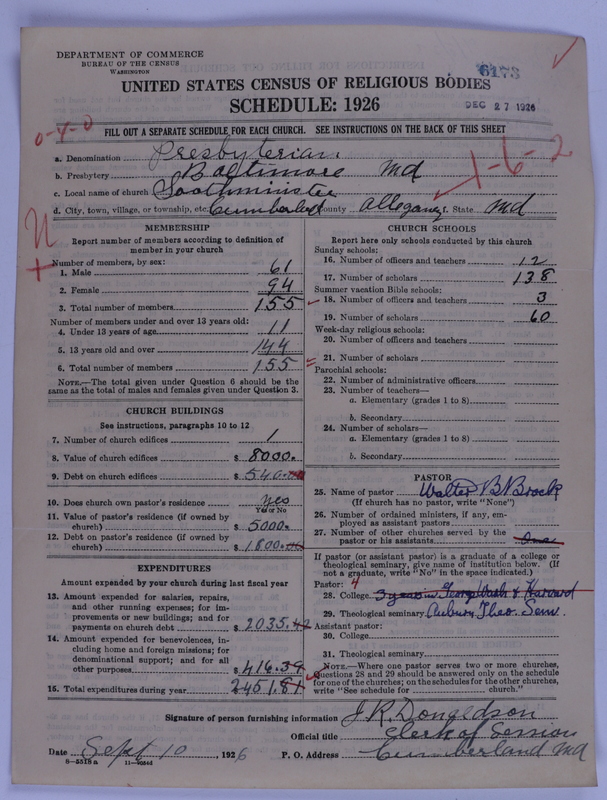 DEPARTMENT OF COMMERCE
BUREAU OF THE CENSUS
WASHINGTON
6173
UNITED STATES CENSUS OF RELIGIOUS BODIES
SCHEDULE: 1926
DEC 27 1926
0-4-0
FILL OUT A SEPARATE SCHEDULE FOR EACH CHURCH. SEE INSTRUCTIONS ON THE BACK OF THIS SHEET
a. Denomination Presbyterian
b. Presbytery Baltimore Md
1-6-2
c. Local name of church Southminster
d. City, town, village, or township, etc. Cumberland County Allegany f. State Md
MEMBERSHIP
Report number of members according to definition of
member in your church
Number of members, by sex:
1. Male 61
2. Female 94
3. Total number of members 155
Number of members under and over 13 years old:
4. Under 13 years of age 11
5. 13 years old and over 144
6. Total number of members 155
NOTE.—The total given under Question 6 should be
same as the total of males and females given under Question 3.
CHURCH BUILDINGS
See instructions, paragraphs 10 to 12
7. Number of church edifices 1
8. Value of church edifices $ 8000.
9. Debt on church edifices $ 540.00
10. Does church own pastor's residence yes
Yes or No
11. Value of pastor's residence (if owned by
church) $ 5000.
12. Debt on pastor's residence (if owned by
church) $ 1800.00
EXPENDITURES
Amount expended by your church during last fiscal year
13. Amount expended for salaries, repairs,
and other running expenses; for im-
provements or new buildings; and for
payments on church debt $ 2035.42
14. Amount expended for benevolences, in-
cluding home and foreign missions; for
denominational support; and for all
other purposes $ 416.39
15. Total expenditures during year 2451.81
CHURCH SCHOOLS
Report here only schools conducted by this church
Sunday schools:
16. Number of officers and teachers 12
17. Number of scholars 138
Summer vacation Bible schools:
18. Number of officers and teachers 3
19. Number of scholars 60
Week-day religious schools:
20. Number of officers and teachers
21. Number of scholars
Parochial schools:
22. Number of administrative officers
23. Number of teachers—
a. Elementary (grades 1 to 8)
b. Secondary
24. Number of scholars—
a. Elementary (grades 1 to 8)
b. Secondary
PASTOR
25. Name of pastor Walter B Brock
(If church has no pastor, write "None")
26. Number of ordained ministers, if any, em-
ployed as assistant pastors
27. Number of other churches served by the
pastor or his assistants
If pastor (or assistant pastor) is a graduate of a college or
theological seminary, give name of institution below. (If
not a graduate, write "No" in the space indicated.)
Pastor: 4
28. College 3 years in George Wash & Harvard
29. Theological seminary Auburn Theo. Sem.
Assistant pastor:
30. College
31. Theological seminary
NOTE.—Where one pastor serves two or more churches,
Questions 28 and 29 should be answered only on the schedule
for one of the churches; on the schedules for the other churches,
write "See schedule for church."
Signature of person furnishing information J R Donaldson
Official title Clerk of Session
Date Sept 10, 1926 P. O. Address Cumberland Md
8-5518a